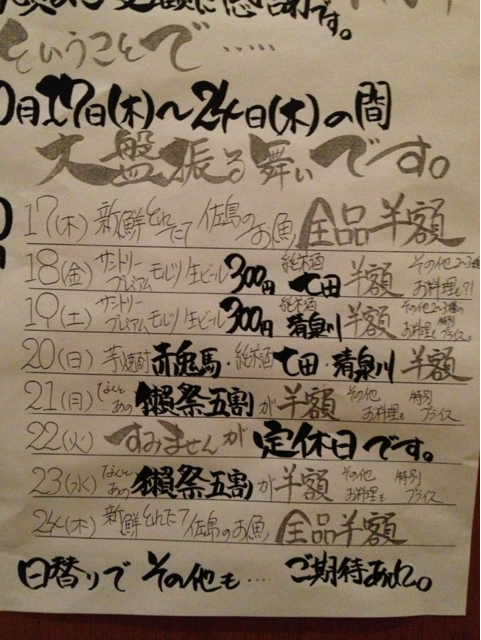 に感謝です。
ということで・・・・・
0月17日(木)〜24日(木)の間
大盤振る舞いです。
17(木) 新鮮とれたて佐島のお魚 全品半額
18(金) サントリープレアムモルツ生ビール300円 純米酒 七田 半額 その他2〜3種お料理も?!
19(土) サントリープレアムモルツ生ビール300円 純米酒 清泉川 半額 その他2〜3種のお料理も特別プライス。
20(日) 芋焼酎 赤兎馬・純米酒 七田・清泉川 半額
21(月) なんとあの獺祭五割が半額 その他お料理も特別プライス
22(火) すみませんが定休日です。
23(水) なんとあの獺祭五割が半額 その他お料理も特別プライス
24(木) 新鮮とれたて佐島のお魚 全品半額
日替りで その他も・・・・ ご期待あれ。